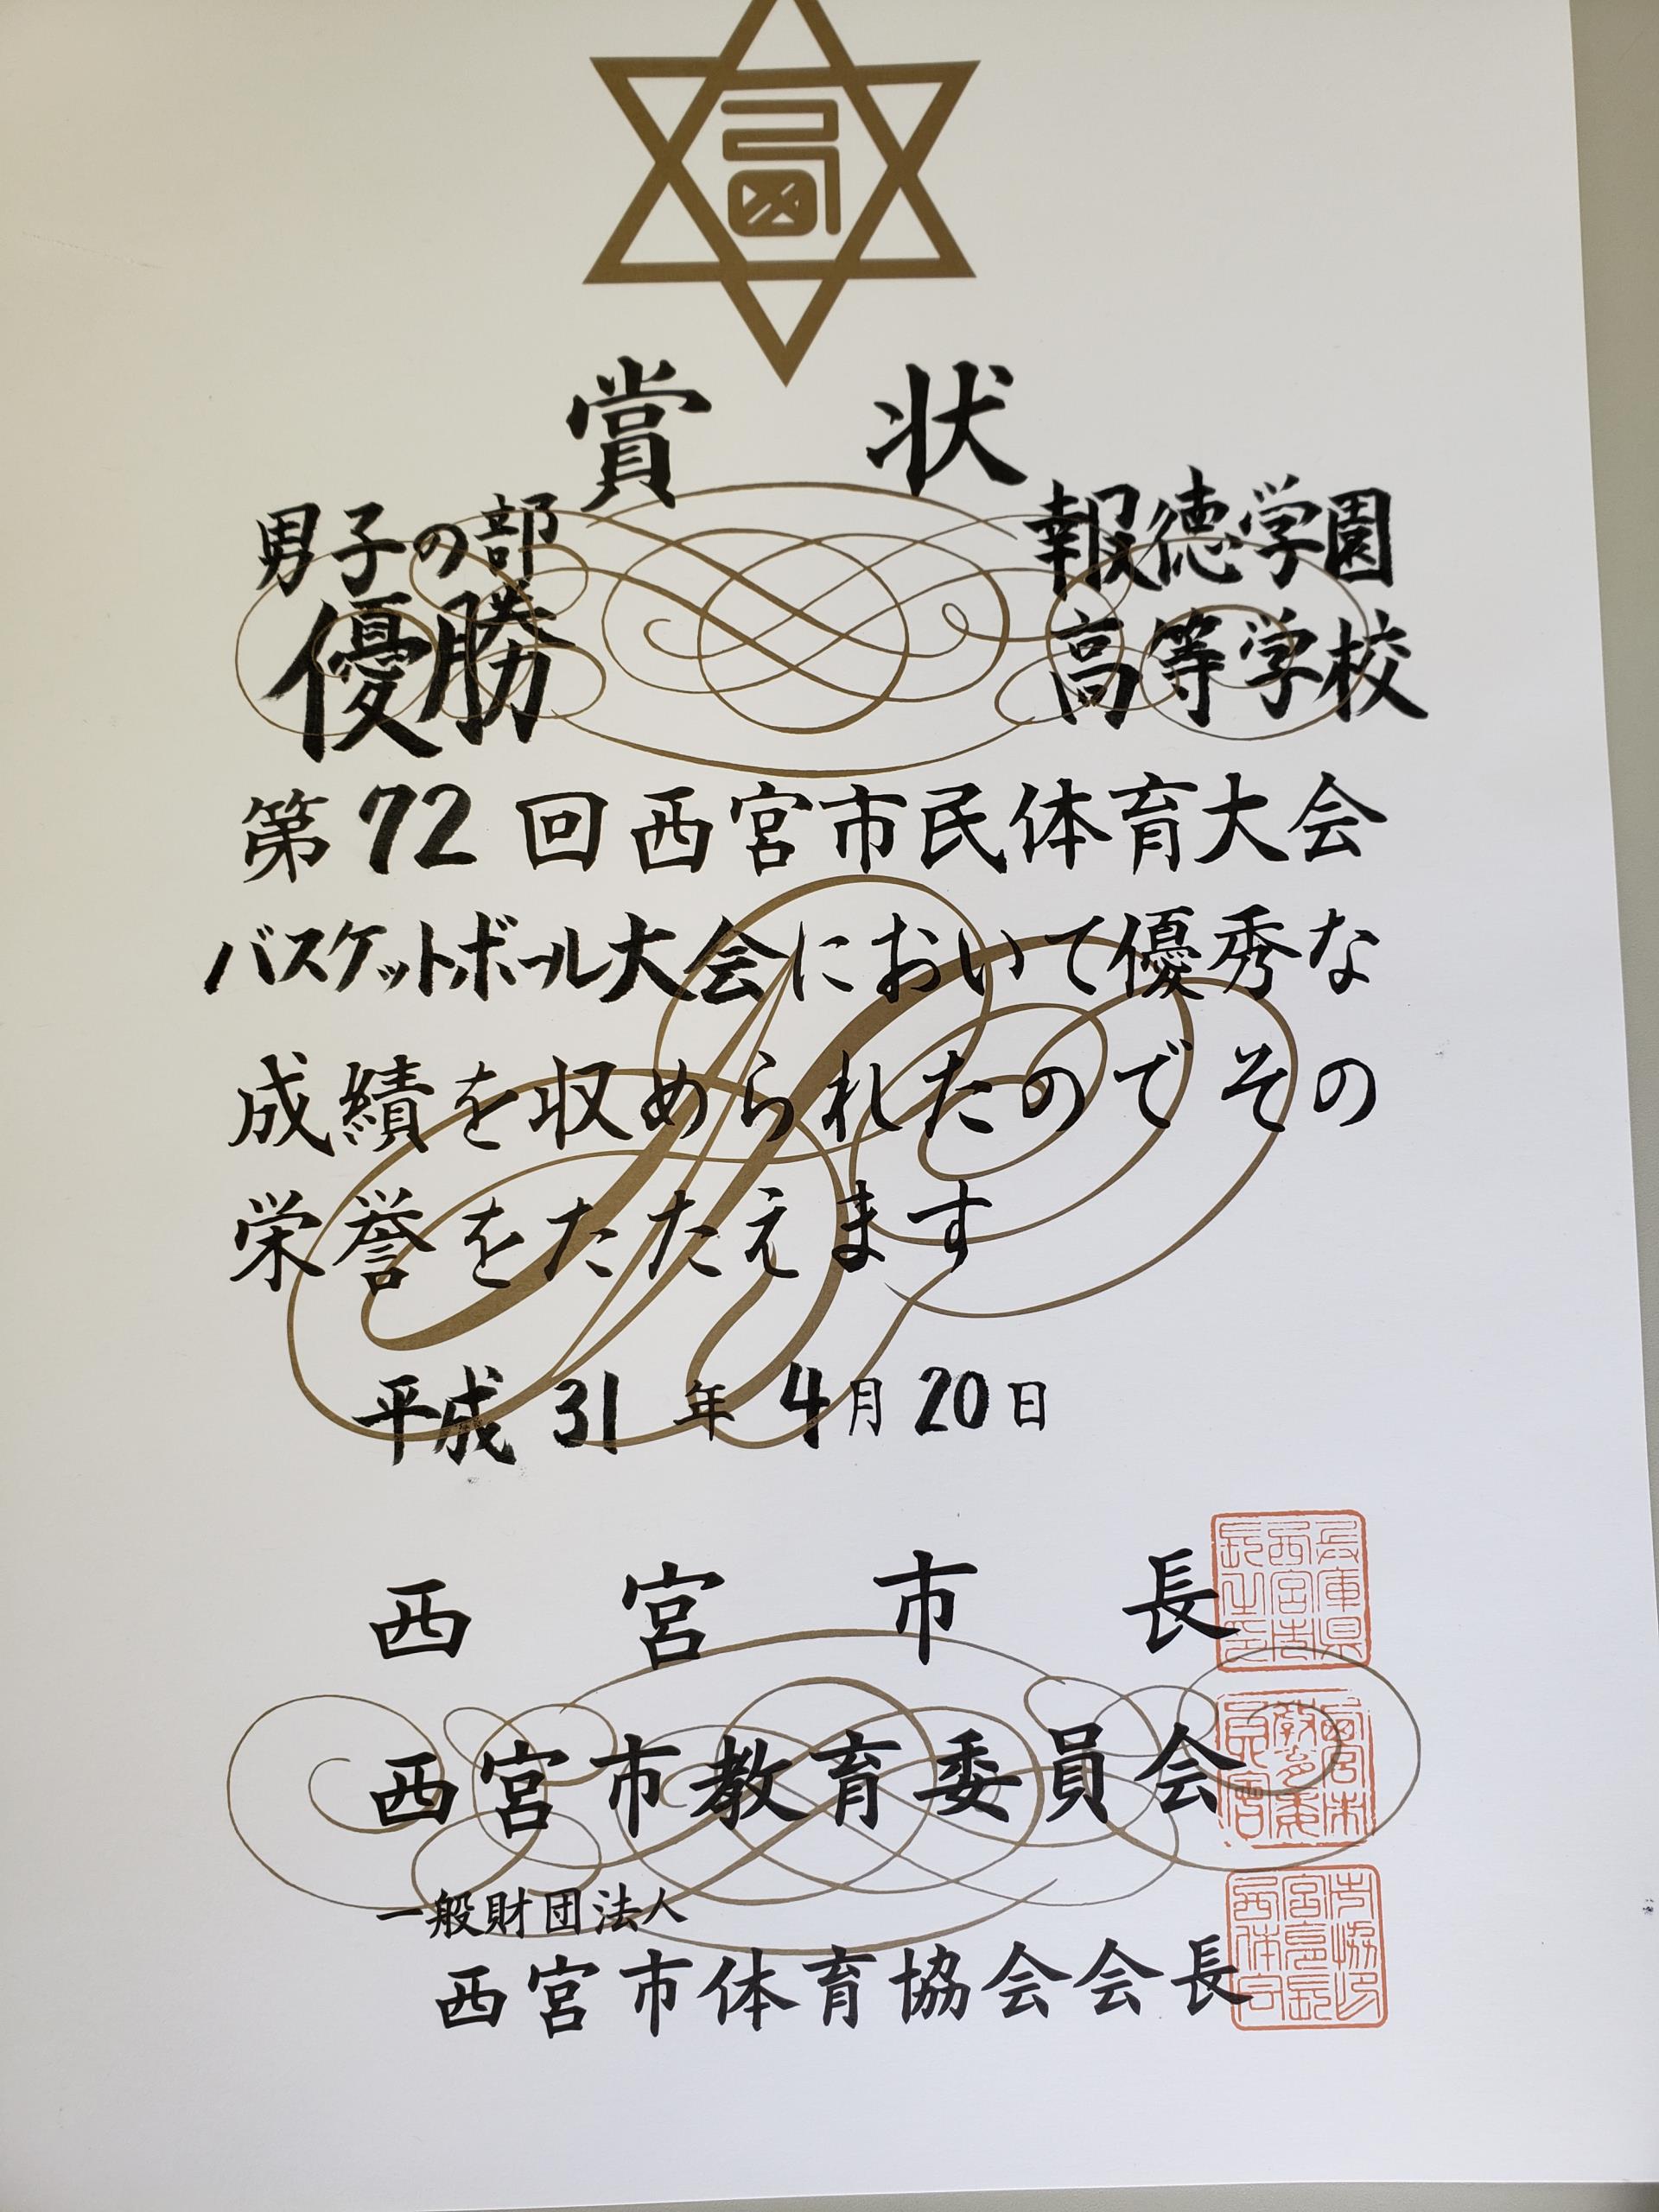 賞状
男子の部
優勝
報徳学園
高等学校
第72回西宮市民体育大会
バスケットボール大会において優秀な
成績を収められたのでその
栄誉をたたえます
平成31年4月20日
西宮市長
兵庫県西宮市長之印
西宮市教育委員会
一般財団法人
西宮市体育協会会長